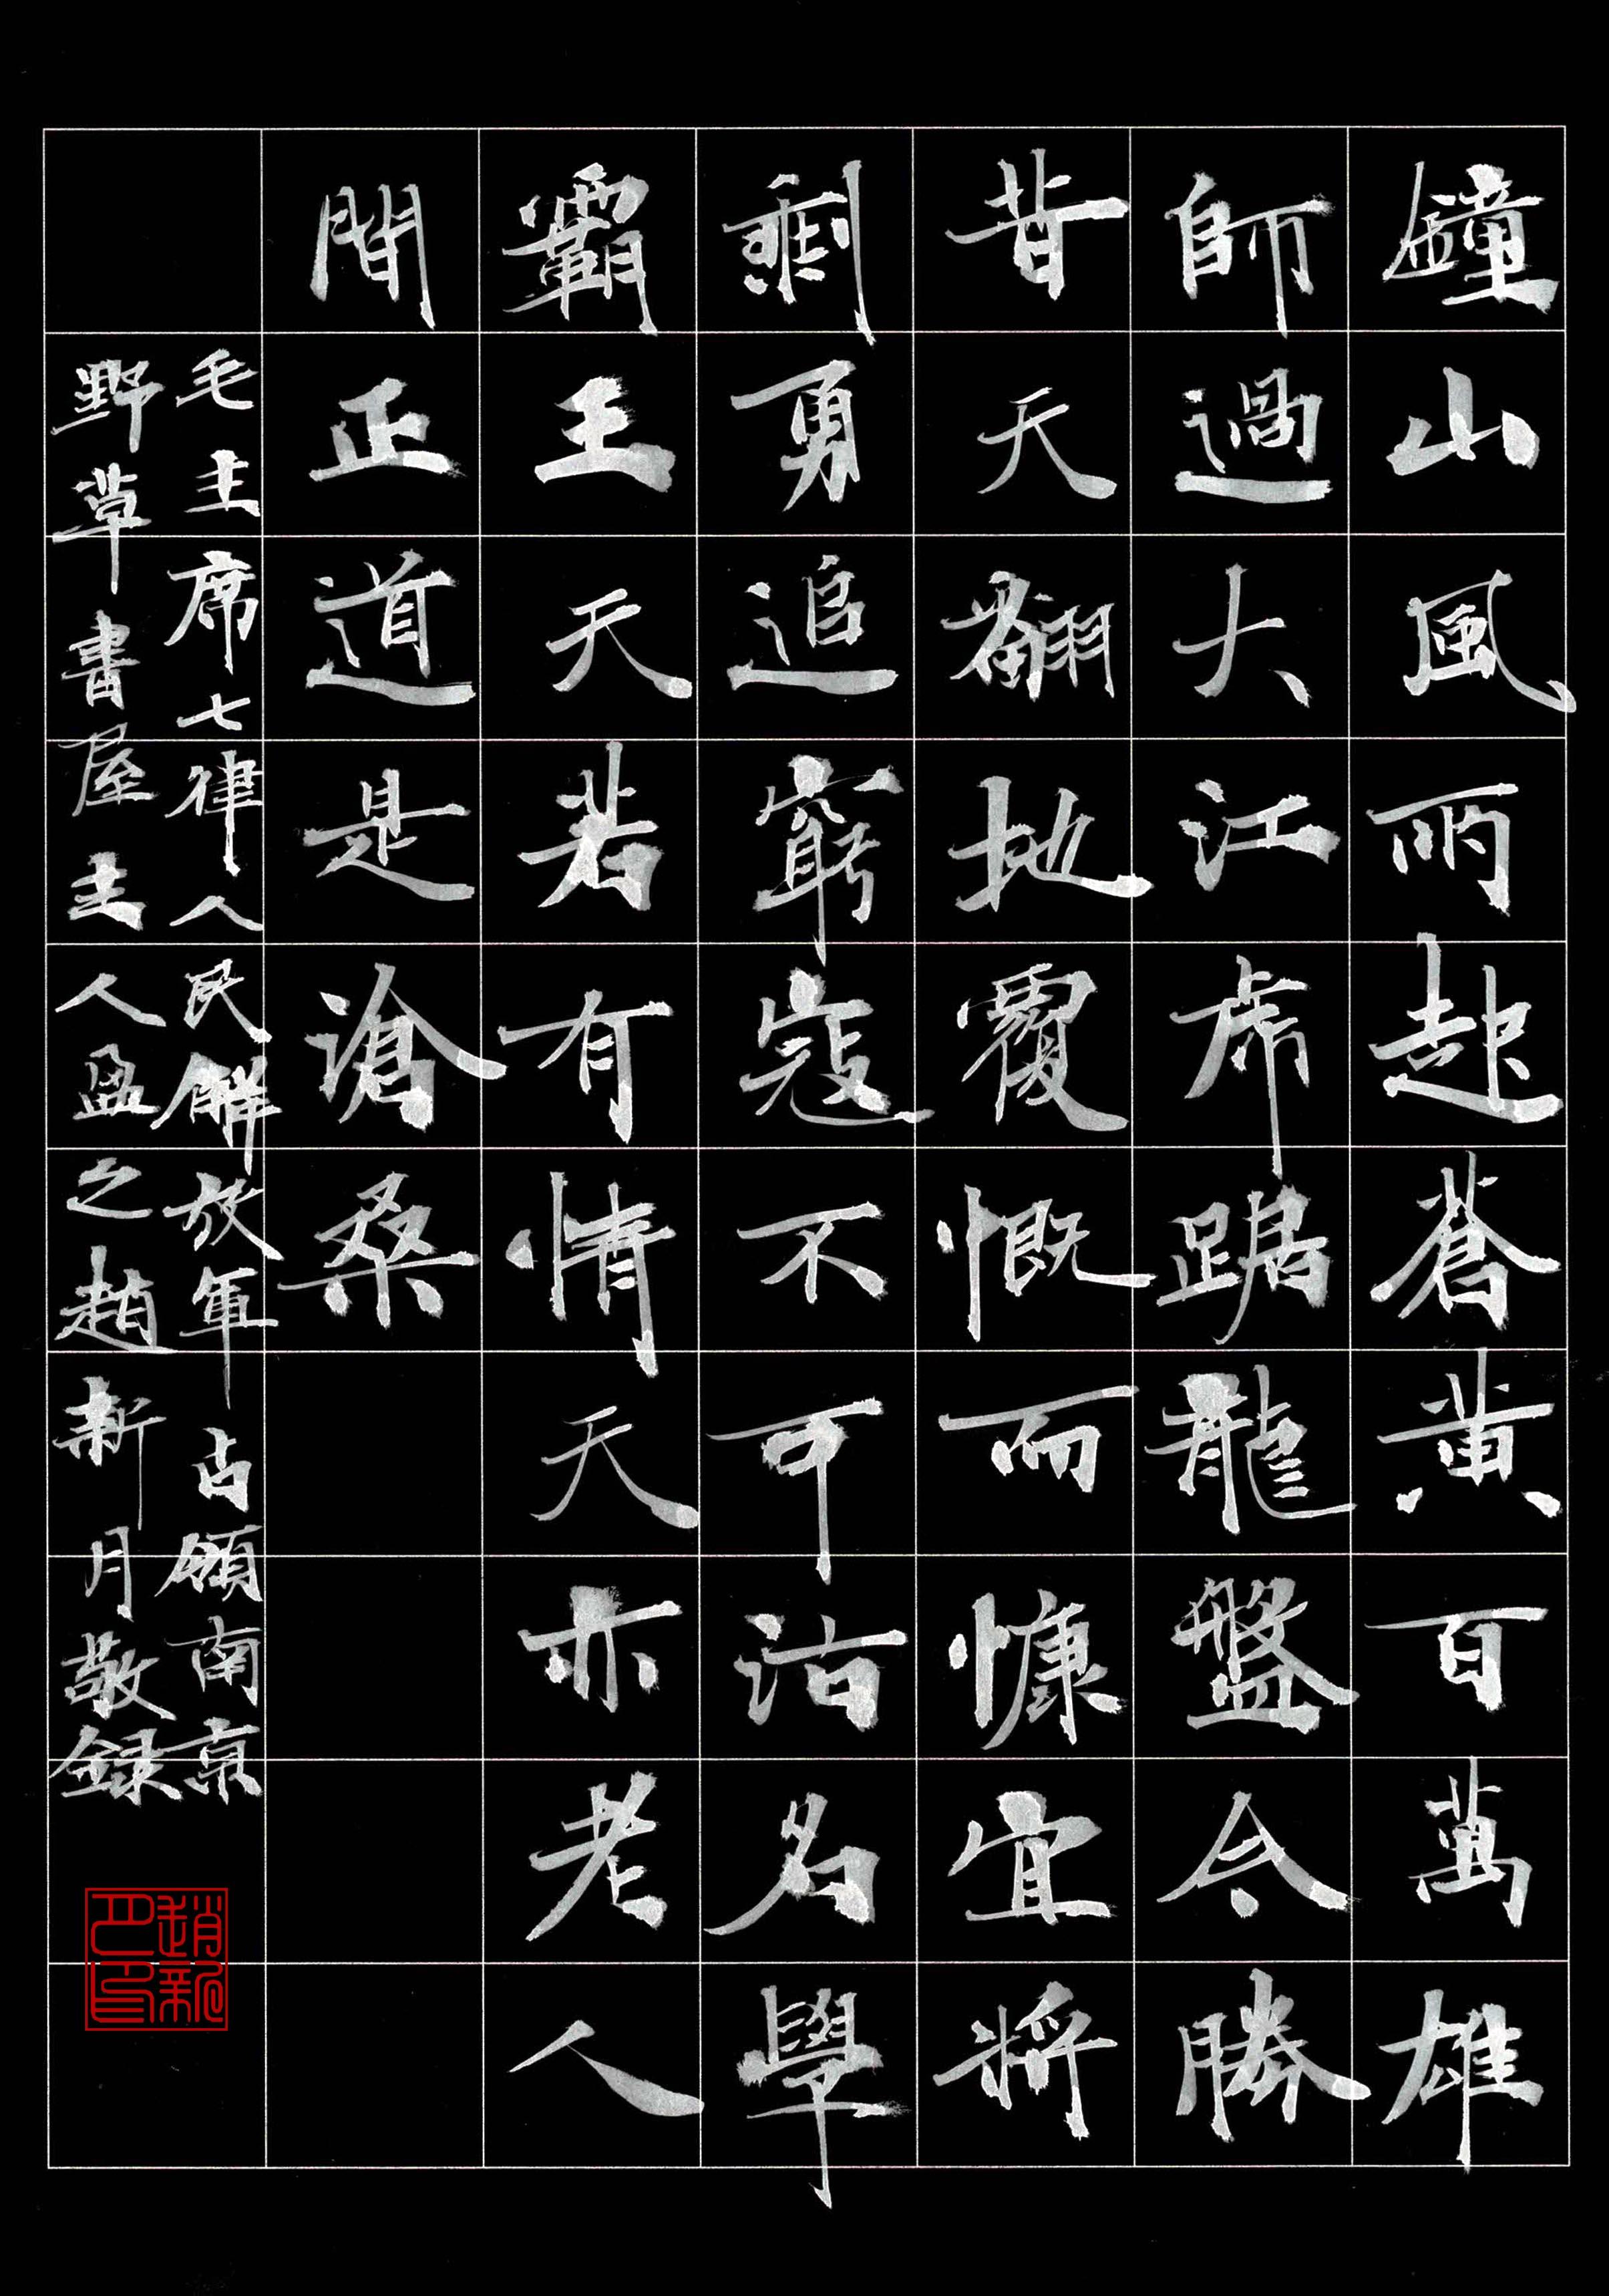 鐘山風雨起蒼黃百萬雄
師過大江虎踞龍盤今勝
昔天翻地覆慨而慷宜將
剩勇追窮寇不可沽名學
霸王天若有情天亦老人
間正道是滄桑
毛主席七律人民解放軍占領南京
野草書屋主人盈之趙新月敬録
趙新月印